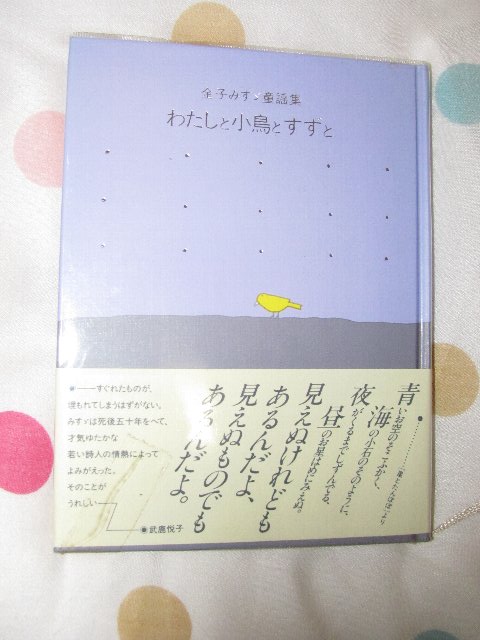 金子みすゞ童謡集
わたしと小鳥とすずと
……「星とたんぽぽ」より
青いお空のそこふかく、
海の小石のそのように、
夜がくるまでしずんでる、
昼のお星はめにみえぬ。
見えぬけれども
あるんだよ、
見えぬものでも
あるんだよ。
──すぐれたものが、
埋もれてしまうはずがない。
みすゞは死後五十年をへて、
才気ゆたかな
若い詩人の情熱によって
よみがえった。
そのことが
うれしい──
武鹿悦子